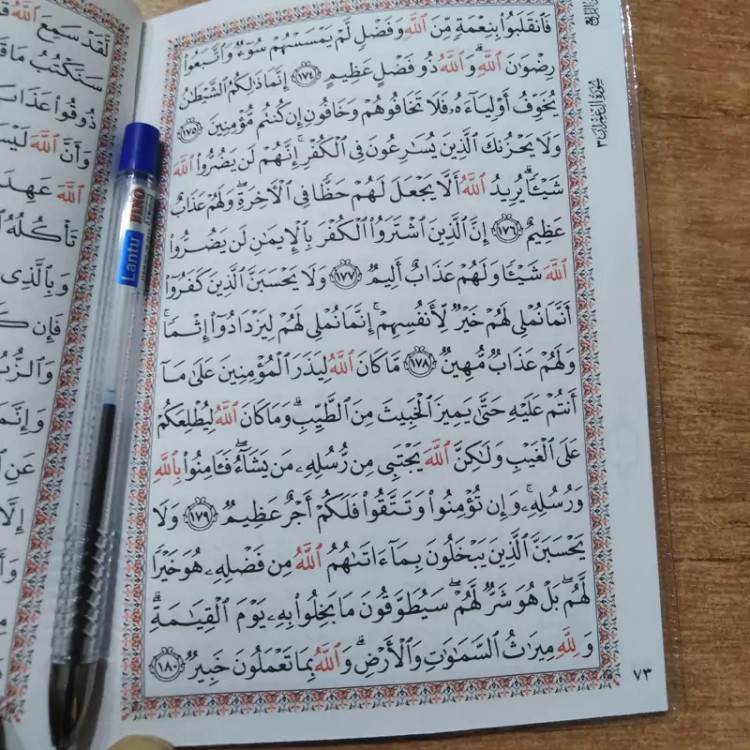 فَٱنقَلَبُوا۟ بِنِعْمَةٍ مِّنَ ٱللَّهِ وَفَضْلٍ لَّمْ يَمْسَسْهُمْ سُوٓءٌ وَٱتَّبَعُوا۟
رِضْوَٰنَ ٱللَّهِ ۗ وَٱللَّهُ ذُو فَضْلٍ عَظِيمٍ ١٧٤ إِنَّمَا ذَٰلِكُمُ ٱلشَّيْطَٰنُ
يُخَوِّفُ أَوْلِيَآءَهُۥ فَلَا تَخَافُوهُمْ وَخَافُونِ إِن كُنتُم مُّؤْمِنِينَ ١٧٥
وَلَا يَحْزُنكَ ٱلَّذِينَ يُسَٰرِعُونَ فِى ٱلْكُفْرِ ۚ إِنَّهُمْ لَن يَضُرُّوا۟ ٱللَّهَ
شَيْـًٔا ۗ يُرِيدُ ٱللَّهُ أَلَّا يَجْعَلَ لَهُمْ حَظًّا فِى ٱلْـَٔاخِرَةِ ۖ وَلَهُمْ عَذَابٌ
عَظِيمٌ ١٧٦ إِنَّ ٱلَّذِينَ ٱشْتَرَوُا۟ ٱلْكُفْرَ بِٱلْإِيمَٰنِ لَن يَضُرُّوا۟
ٱللَّهَ شَيْـًٔا وَلَهُمْ عَذَابٌ أَلِيمٌ ١٧٧ وَلَا يَحْسَبَنَّ ٱلَّذِينَ كَفَرُوٓا۟
أَنَّمَا نُمْلِى لَهُمْ خَيْرٌ لِّأَنفُسِهِمْ ۚ إِنَّمَا نُمْلِى لَهُمْ لِيَزْدَادُوٓا۟ إِثْمًا ۚ
وَلَهُمْ عَذَابٌ مُّهِينٌ ١٧٨ مَّا كَانَ ٱللَّهُ لِيَذَرَ ٱلْمُؤْمِنِينَ عَلَىٰ مَآ
أَنتُمْ عَلَيْهِ حَتَّىٰ يَمِيزَ ٱلْخَبِيثَ مِنَ ٱلطَّيِّبِ ۗ وَمَا كَانَ ٱللَّهُ لِيُطْلِعَكُمْ
عَلَى ٱلْغَيْبِ وَلَٰكِنَّ ٱللَّهَ يَجْتَبِى مِن رُّسُلِهِۦ مَن يَشَآءُ ۖ فَـَٔامِنُوا۟ بِٱللَّهِ
وَرُسُلِهِۦ ۚ وَإِن تُؤْمِنُوا۟ وَتَتَّقُوا۟ فَلَكُمْ أَجْرٌ عَظِيمٌ ١٧٩ وَلَا
يَحْسَبَنَّ ٱلَّذِينَ يَبْخَلُونَ بِمَآ ءَاتَىٰهُمُ ٱللَّهُ مِن فَضْلِهِۦ هُوَ خَيْرًا
لَّهُم ۖ بَلْ هُوَ شَرٌّ لَّهُمْ ۖ سَيُطَوَّقُونَ مَا بَخِلُوا۟ بِهِۦ يَوْمَ ٱلْقِيَٰمَةِ ۗ
وَلِلَّهِ مِيرَٰثُ ٱلسَّمَٰوَٰتِ وَٱلْأَرْضِ ۗ وَٱللَّهُ بِمَا تَعْمَلُونَ خَبِيرٌ ١٨٠
٧٣
سُورَةُ آلِ عِمْرَانَ ٣
لَّقَدْ سَمِعَ ٱللَّهُ
سَنَكْتُبُ مَا
ذُوقُوا۟ عَذَابَ
وَأَنَّ ٱللَّهَ لَيْسَ
ٱللَّهَ عَهِدَ
تَأْكُلُهُ
وَبِٱلَّذِى
فَإِن
وَٱلزُّبُرِ
وَإِنَّمَا
عَنِ
إِلَّا
Lantu